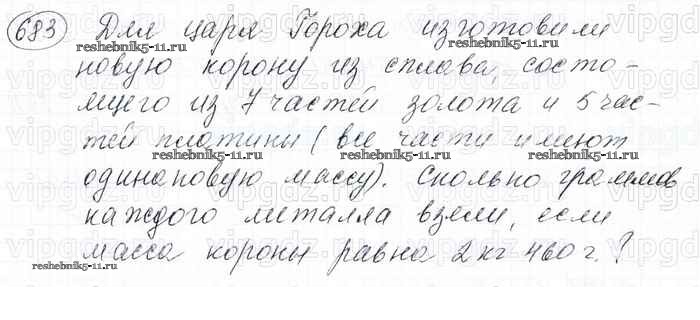 683 Для царя Гороха изготовили
новую корону из сплава, состо-
ящего из 7 частей золота и 5 час-
тей платины (все части имеют
одинаковую массу). Сколько граммов
каждого металла взяли, если
масса короны равна 2 кг 460 г.?
reshebnik5-11.ru
reshebnik5-11.ru
reshebnik5-11.ru
reshebnik5-11.ru
reshebnik5-11.ru
reshebnik5-11.ru
reshebnik5-11.ru